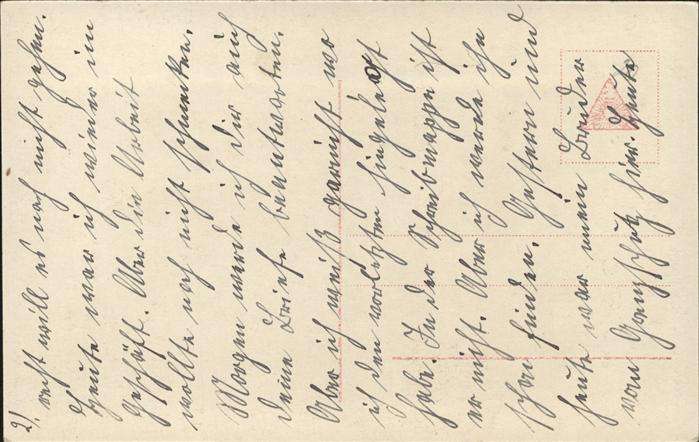 2)
recht will es noch nicht gehen.
Heute war ich wieder im
Geschäft. Aber die Arbeit
wollte noch nicht schmecken.
Morgen werde ich dir auch
deine Briefe beantworten.
Aber ich weiß garnicht wo
ich den vorletzten hingelegt
habe. In der Schreibmappe ist
er nicht. Aber ich werde ihn
schon finden. Gestern und
heute war mein Bruder
von hier. Heute